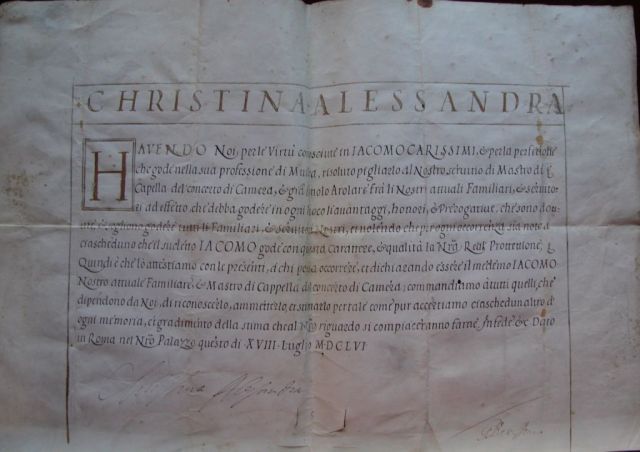 CHRISTINA ALESSANDRA
HAVENDO Noi, per le Virtù conosciute in IACOMO CARISSIMI, & per la perfettione
che gode nella sua professione di Musica, risoluto pigliarlo al Nostro servitio di Mastro di
Capella del concerto di Camera, & Arolare frà li Nostri attuali Familiari, & servito-
ri ad effetto, che debba godere in ogni luoco li avantaggi, honori, & Prerogative, che sono do-
vute, e sogliono godere tutti li Familiari, & servitori Nostri, et volendo che p. ogni occorrenza sia noto à
ciascheduno che il sudetto IACOMO gode con questo Carattere, & qualità la Nrã Protettione,
Quindi è che l'attestiamo con le presenti, à chi possa occorrere, et dichiarando essere il medemo IACOMO
Nostro attuale Familiare, & Mastro di Cappella del concerto di Camera; commandiamo à tutti quelli, che
dipendono da Noi, di riconoscerlo, ammetterlo, et stimarlo per tale come pur accertiamo ciaschedun altro d'
ogni memoria, et gradimento della stima che al Nrõ riguardo si compiaceranno farne, In fede &c Dato
in Roma nel Nrõ Palazzo questo di XVIII Luglio MDCLVI
Christina Alessandra